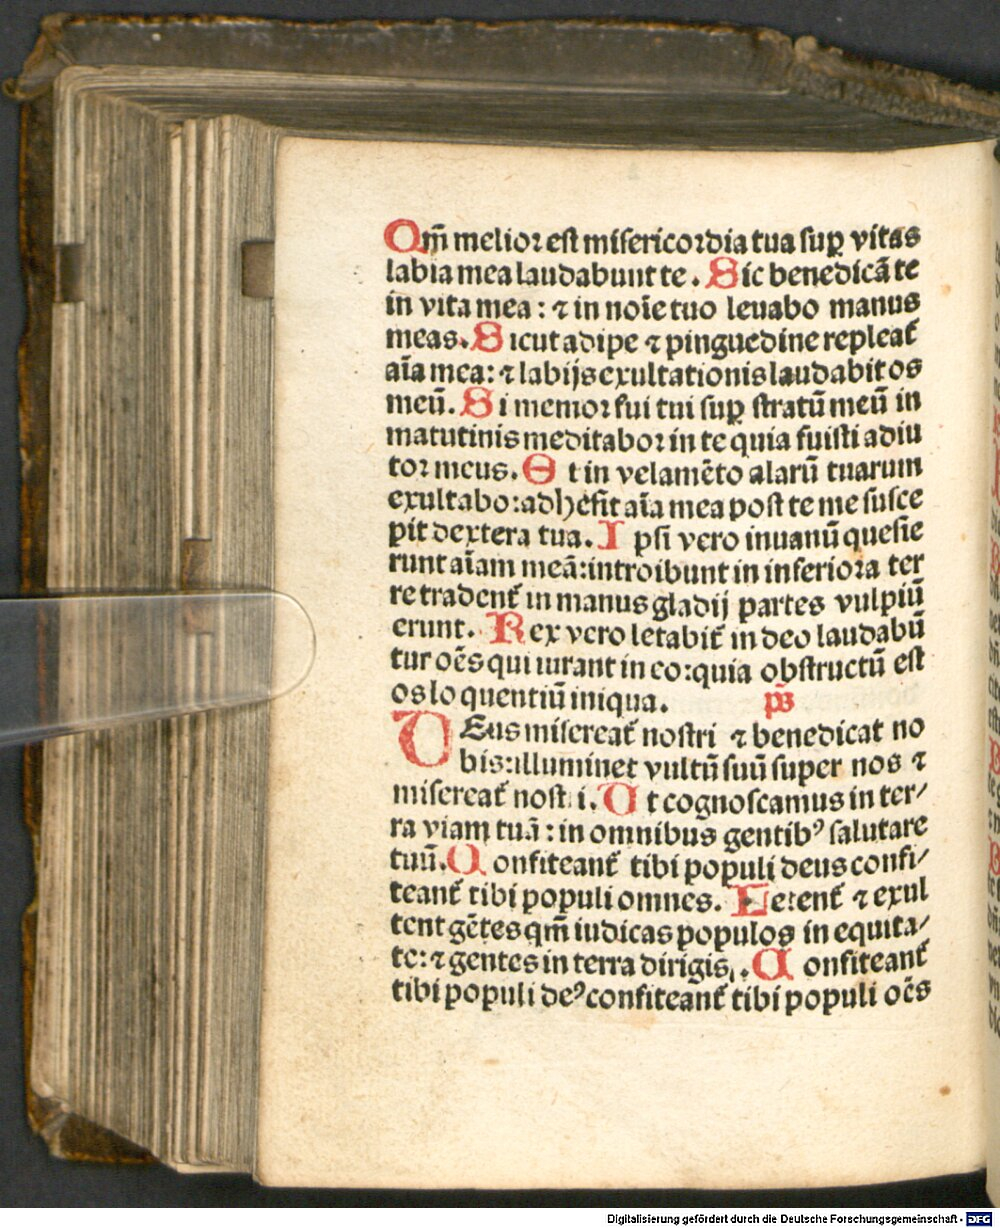 Qm̄ melior est misericordia tua suꝑ vitas
labia mea laudabunt te. Sic benedicā te
in vita mea: ⁊ in noīe tuo leuabo manus
meas. Sicut adipe ⁊ pinguedine repleat᷑
aīa mea: ⁊ labijs exultationis laudabit os
meū. Si memor fui tui suꝑ stratū meū in
matutinis meditabor in te quia fuisti adiu
tor meus. Et in velamēto alarū tuarum
exultabo: adhēsit aīa mea post te me susce
pit dextera tua. Ipsi vero inuanū quesie
runt aīam meā: introibunt in inferiora ter
re tradent᷑ in manus gladij partes vulpiū
erunt. Rex vero letabit᷑ in deo laudabū
tur oēs qui iurant in eo: quia obstructū est
os loquentiū iniqua. p̄s
DEus misereat᷑ nostri ⁊ benedicat no
bis: illuminet vultū suū super nos ⁊
misereat᷑ nostri. Ut cognoscamus in ter/
ra viam tuā: in omnibus gentibꝰ salutare
tuū. Confiteant᷑ tibi populi deus confi/
teant᷑ tibi populi omnes. Letent᷑ ⁊ exul
tent gētes qm̄ iudicas populos in equita/
te: ⁊ gentes in terra dirigis. Confiteant᷑
tibi populi deꝰ confiteant᷑ tibi populi oēs
Digitalisierung gefördert durch die Deutsche Forschungsgemeinschaft - DFG